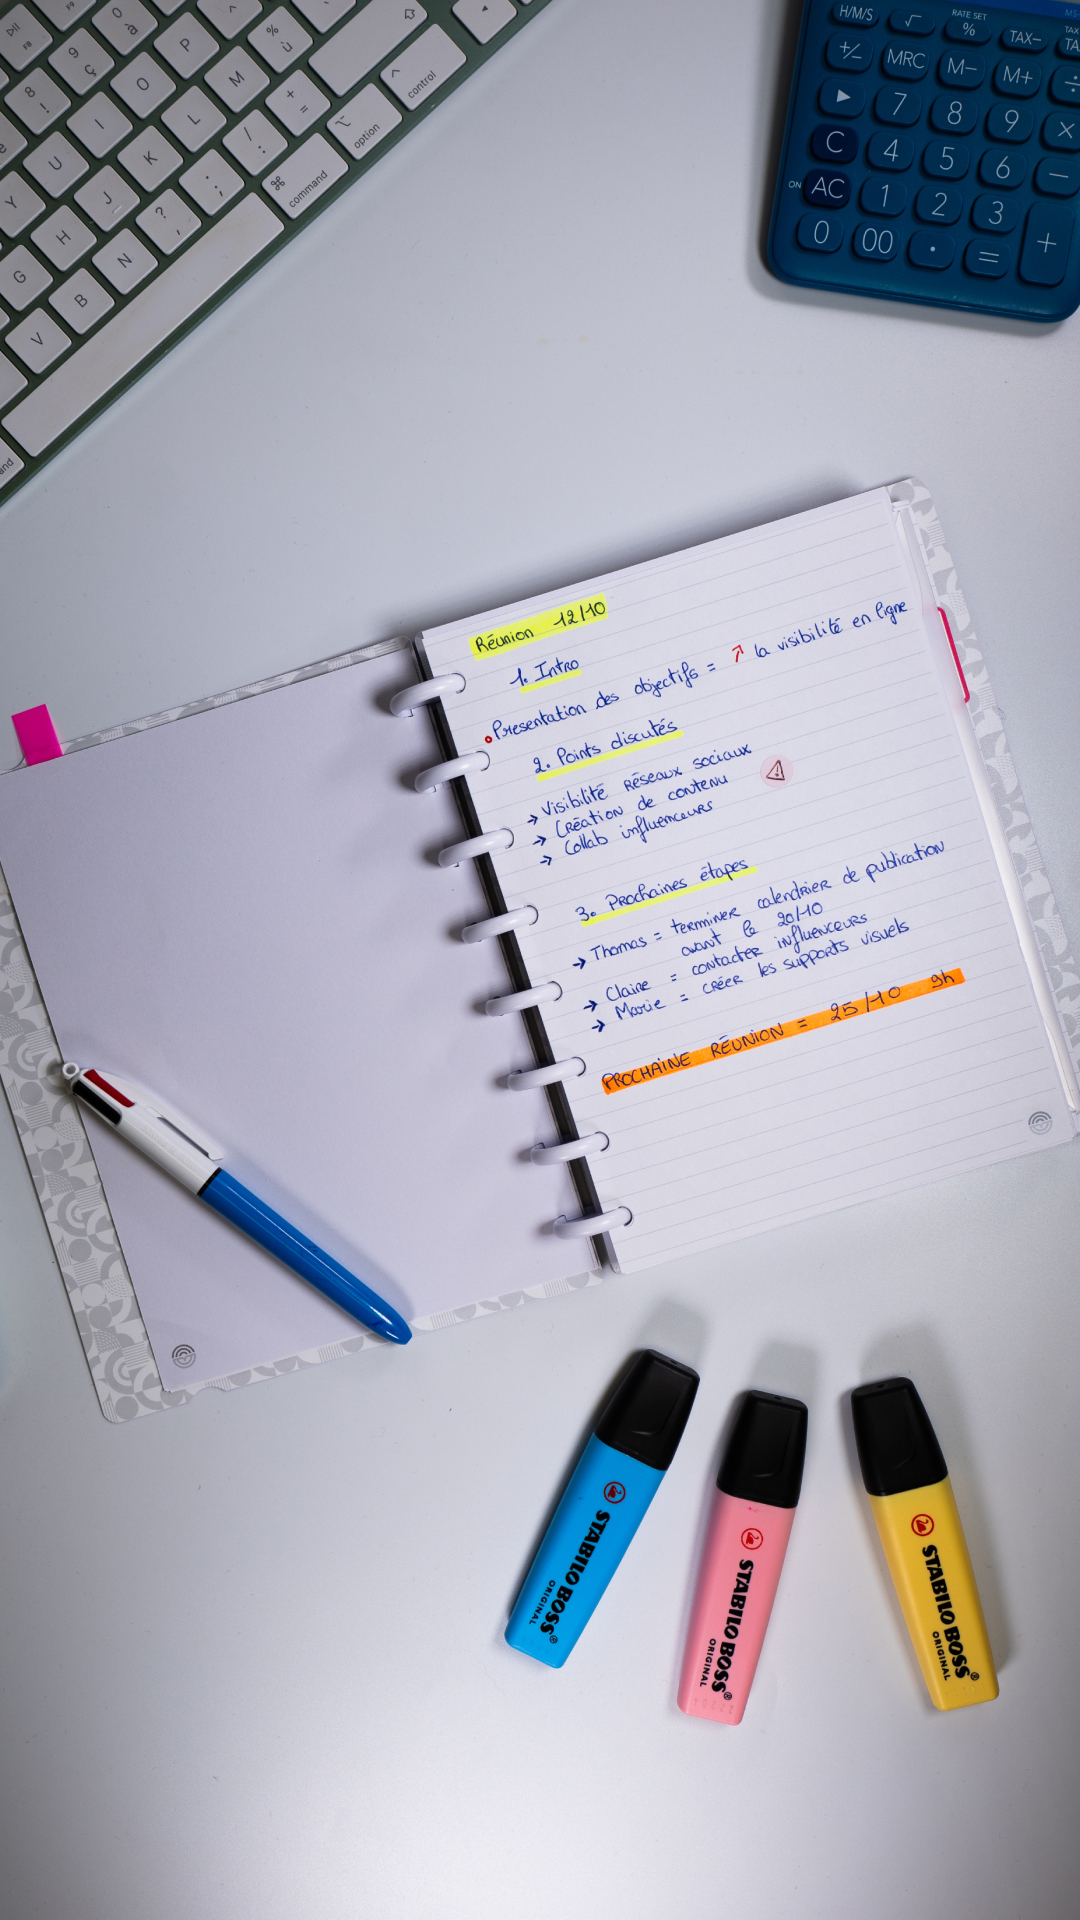 F8
F9
8
!
9
ç
0
à
^
%
ù
P
M
O
L
I
K
U
J
Y
H
G
N
B
V
?
,
;
.
/
:
+
=
e
⌘
command
⌥
option
^
control
and
H/M/S
√
RATE SET
%
TAX−
TAX
TA
+/−
MRC
M−
M+
÷
▶
7
8
9
×
C
4
5
6
−
ON
AC
1
2
3
+
0
00
·
=
Réunion 12/10
1. Intro
• Presentation des objectifs = ↗ la visibilité en ligne
2. Points discutés
→ Visibilité réseaux sociaux
→ Création de contenu
→ Collab influenceurs
3. Prochaines étapes
→ Thomas = terminer calendrier de publication
avant le 20/10
→ Claire = contacter influenceurs
→ Marie = créer les supports visuels
PROCHAINE RÉUNION = 25/10 9h
STABILO BOSS®
ORIGINAL
STABILO BOSS®
ORIGINAL
STABILO BOSS®
ORIGINAL